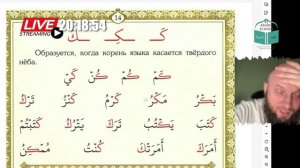 LIVE 20:18:54
STREAMING
14
كَـ ـسكِـ ـكُ
Образуется, когда корень языка касается твёрдого нёба.
كَمْ كُمْ كُنْ كَيْ
بَكْرُ مَكْرُ كَرَمْ كَنْزُ تَرَكَ
كَتَبَ يَكْتُبُ تَرَكَ يَتْرُكُ كَتَبْتُمْ
أَمَرَكَ أَمَرَتْكَ كُنْتُ مُمْكِنُ